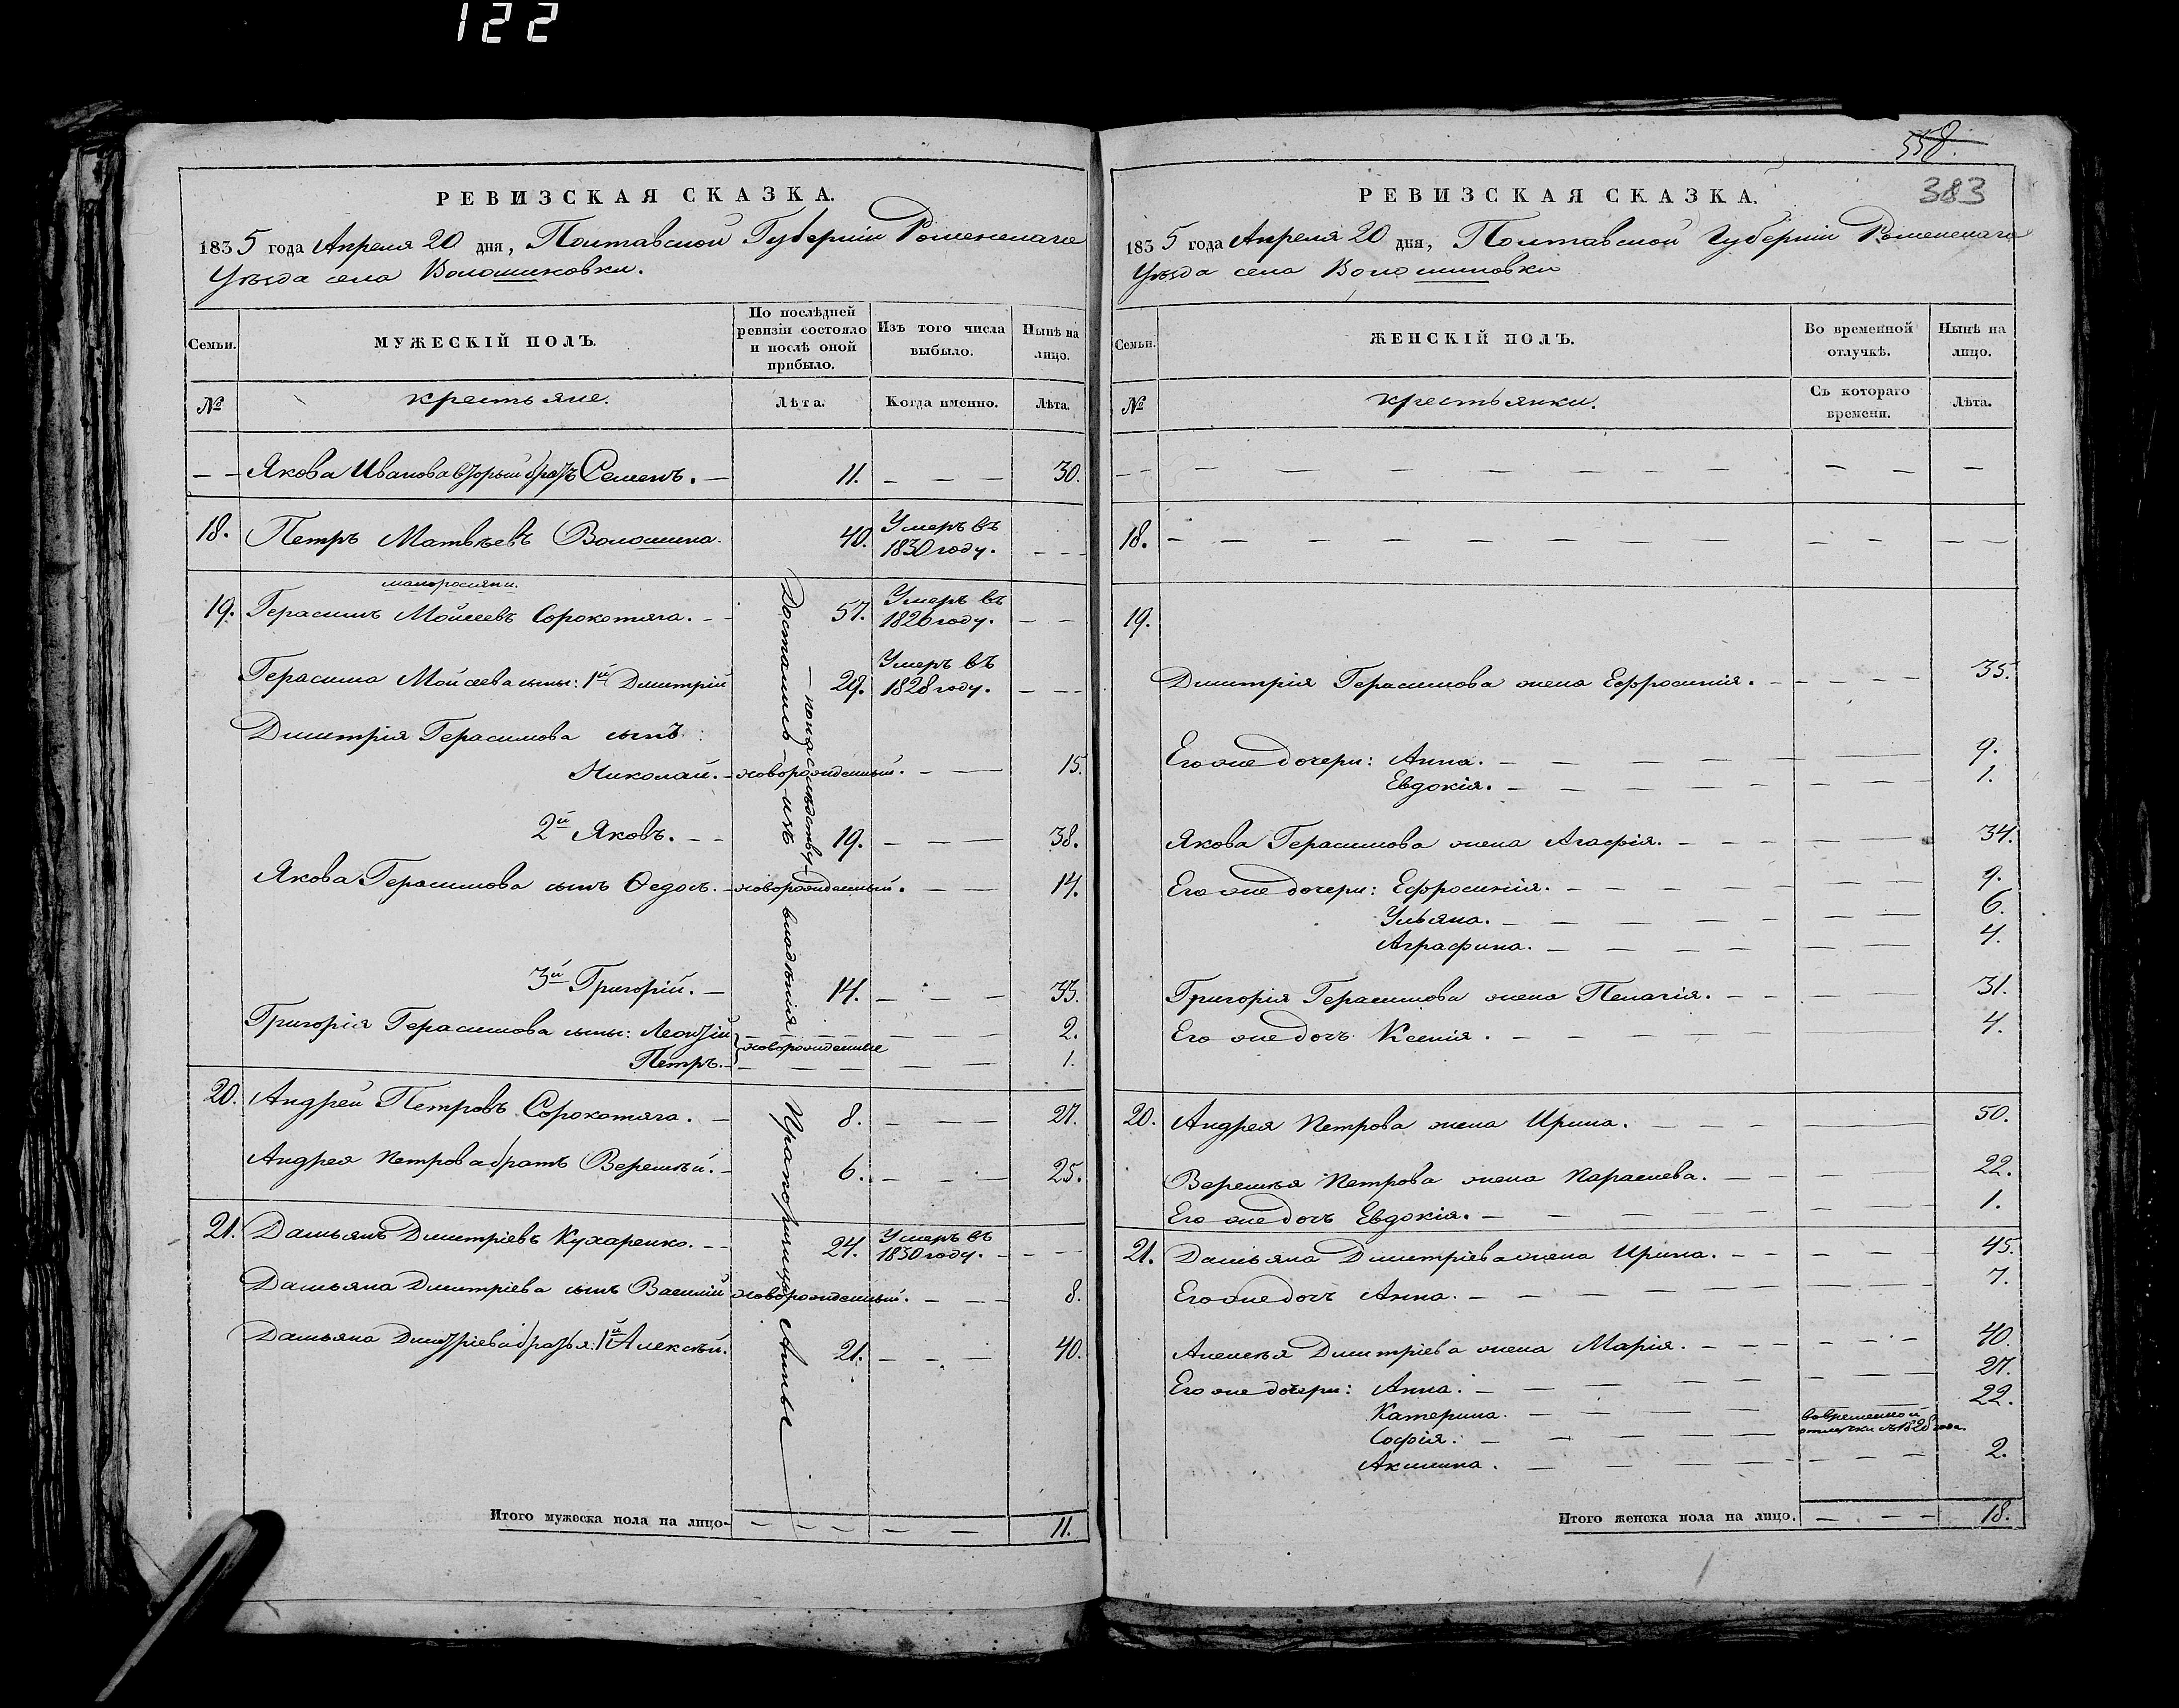 122
РЕВИЗСКАЯ СКАЗКА.
1835 года Апреля 20 дня, Полтавской Губерніи Роменскаго
Уѣзда села Волошиновки.
Семьи.
МУЖЕСКІЙ ПОЛЪ.
По послѣдней ревизіи состояло и послѣ оной прибыло.
Изъ того числа выбыло.
Нынѣ на лицо.
№
крестьяне.
Лѣта.
Когда именно.
Лѣта.
— — Якова Иванова вторый братъ Семенъ. — 11. — — — 30.
18. Петръ Матвѣевъ Волошина. 40. Умеръ въ 1830 году. — — —
малоросіяни.
19. Герасимъ Мойсеевъ Сорокотяга. — — 57. Умеръ въ 1826 году. — —
Герасима Мойсеева сыны: 1й Дмитрій 29. Умеръ въ 1828 году. — — —
Дмитрія Герасимова сынъ:
Николай. — новорожденный. — — 15.
2й Яковъ. — — 19. — — — 38.
Якова Герасимова сынъ Ѳедосъ. — новорожденный. — — 14.
3й Григорій. — 14. — — — 33.
Григорія Герасимова сыны: Леонтій — — — — — — 2.
новорожденные
Петръ. — — — — — — 1.
20. Андрей Петровъ Сорокотяга. — 8. — — — 27.
Андрея Петрова братъ Веремѣй. — 6. — — — 25.
21. Дамьянъ Дмитріевъ Кухаренко. — — 24. Умеръ въ 1830 году. — — —
Дамьяна Дмитріева сынъ Василій новорожденный. — — — 8.
Дамьяна Дмитріева братья: 1й Алексѣй. 21. — — — 40.
Достались — изъ владѣнія Прапорщицы Анны
— по наслѣдству —
Итого мужеска пола на лицо — — — — — — 11.
558.
383
РЕВИЗСКАЯ СКАЗКА.
1835 года Апреля 20 дня, Полтавской Губерніи Роменскаго
Уѣзда села Волошиновки
Семьи.
ЖЕНСКІЙ ПОЛЪ.
Во временной отлучкѣ.
Нынѣ на лицо.
№
крестьянки.
Съ котораго времени.
Лѣта.
— — — — — — — — — — — — —
18. — — — — — — — — — — — —
19.
Дмитрія Герасимова жена Ефросинія. — — — — — 35.
Его же дочери: Анна. — — — — — — 9.
Евдокія. — — — — — — 1.
Якова Герасимова жена Агафія. — — — — — 34.
Его же дочери: Ефросинія. — — — — — — 9.
Ульяна. — — — — — — 6.
Аграфина. — — — — — — 4.
Григорія Герасимова жена Пелагія. — — — — — 31.
Его же дочь Ксенія. — — — — — 4.
20. Андрея Петрова жена Ирина. — — — — 50.
Веремѣя Петрова жена Параскева. — — — — 22.
Его же дочь Евдокія. — — — — — — 1.
21. Дамьяна Дмитріева жена Ирина. — — — — 45.
Его же дочь Анна. — — — — — — — 7.
Алексѣя Дмитріева жена Марія. — — — — — — 40.
Его же дочери: Анна. — — — — — — — 27.
Катерина. — — — — 22.
Софія. — — — — — вовременной отлучки съ 1828 года.
Акилина. — — — — — — — 2.
Итого женска пола на лицо. — — — 18.